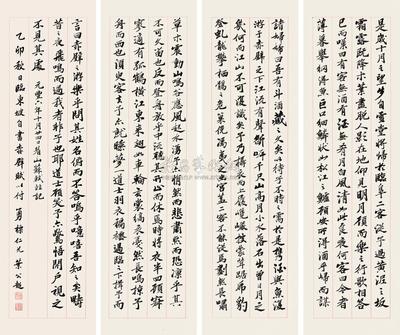 是歲十月之望步自雪堂將歸於臨皋二客從予過黃泥之坂
霜露既降木葉盡脫人影在地仰見明月顧而樂之行歌相答
已而嘆曰有客無酒有酒無肴月白風清如此良夜何客曰今者
薄暮舉網得魚巨口細鱗狀如松江之鱸顧安所得酒乎歸而謀
諸婦婦曰吾有斗酒藏之久矣以待子不時之需於是攜酒與魚復
游于赤壁之下江流有聲斷岸千尺山高月小水落石出曾日月之
幾何而江山不可復識矣予乃攝衣而上履巉巖披蒙茸踞虎豹
登虬龍攀栖鶻之危巢俯馮夷之宮蓋二客不能從焉劃然長嘯
草木震動山鳴谷應風起水湧予亦悄然而悲肅然而恐凜乎其
不可久留也反而登舟放乎中流聽其所止而休焉時將夜半四顧寂
寥適有孤鶴橫江東來翅如車輪玄裳縞衣戛然長鳴掠予
舟而西也須臾客去予亦就睡夢一道士羽衣過臨皋之下揖予而
言曰赤壁之游樂乎問其姓名俯而不答嗚呼噫嘻吾知之矣疇
昔之夜飛鳴而過我者非子也耶道士顧笑予亦驚悟開戶視之
不見其處 元豐六年十月廿四日眉山蘇軾
乙卯秋日臨東坡自書赤壁賦以付 仁兄 葉公超